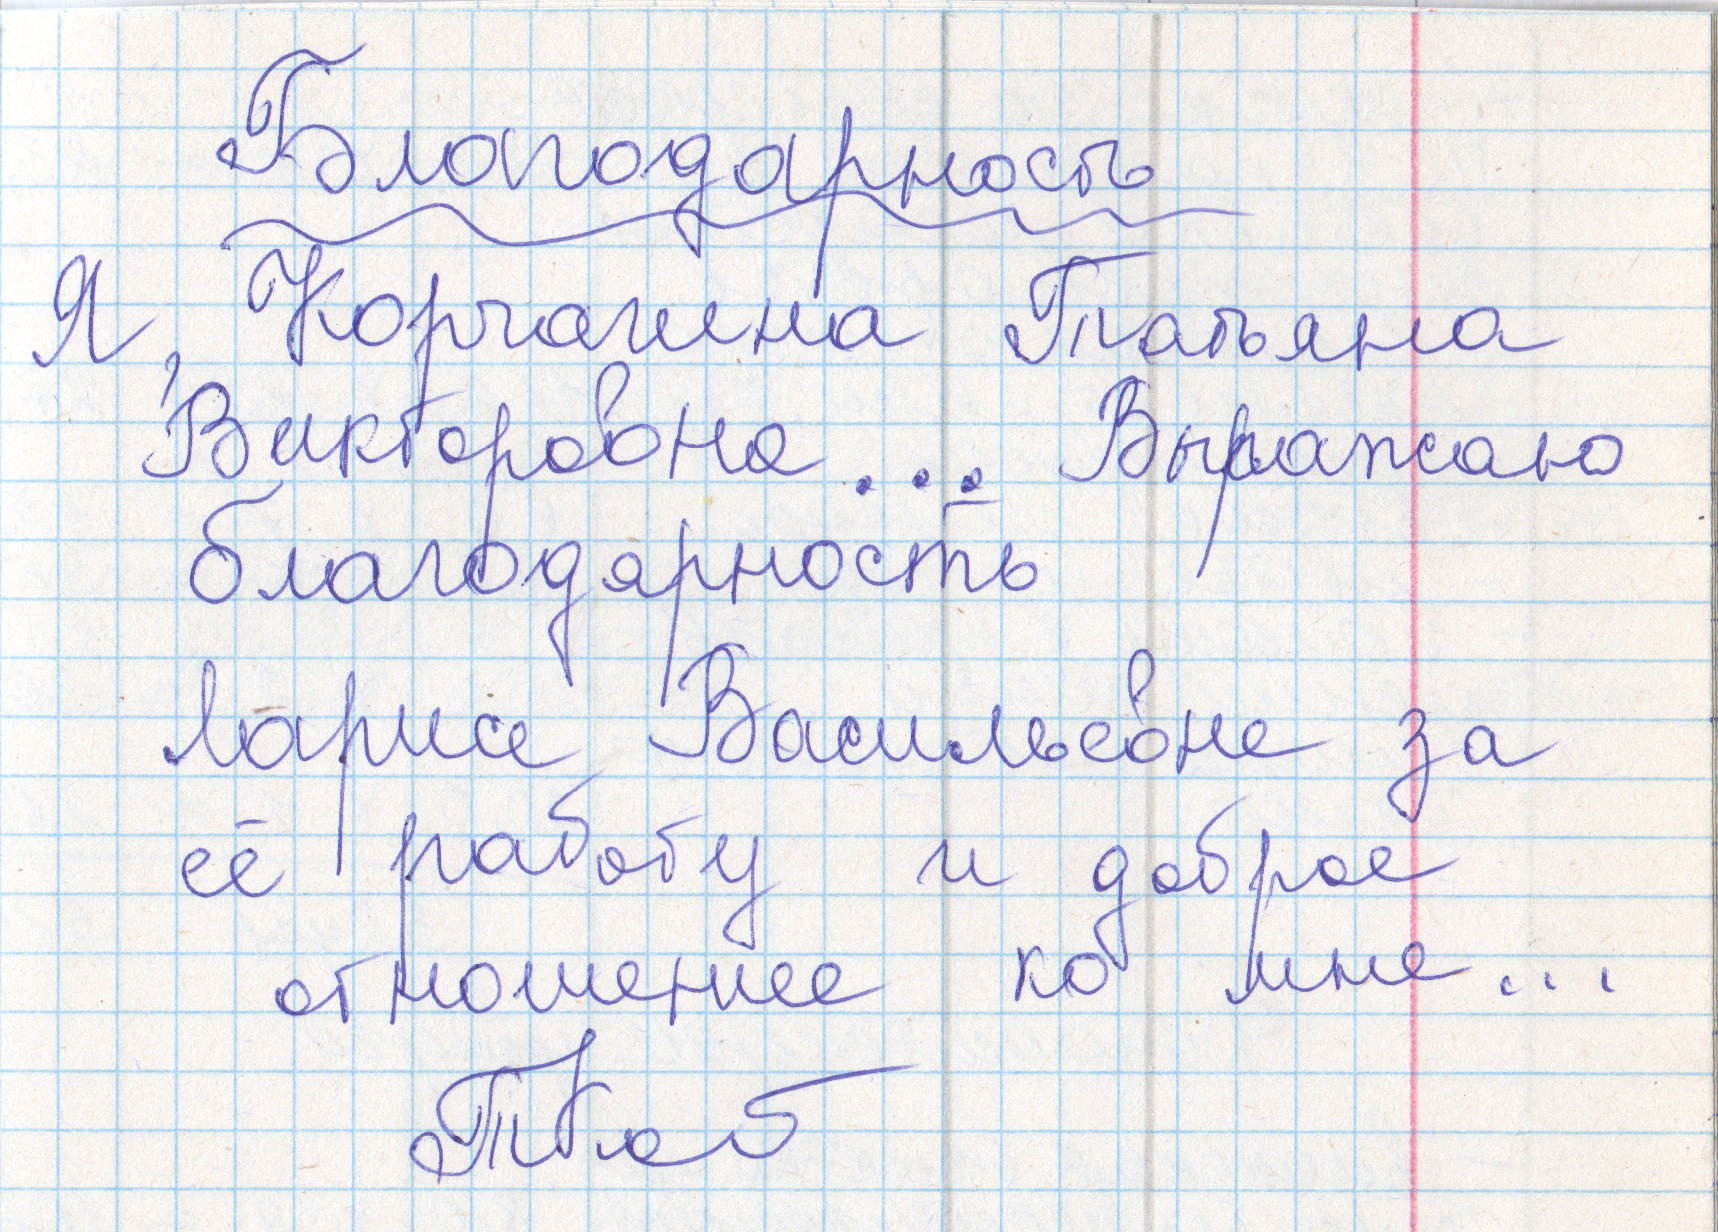 Благодарность
Я, Корчагина Татьяна
Викторовна... Выражаю
благодарность
Ларисе Васильевне за
её работу и доброе
отношение ко мне...